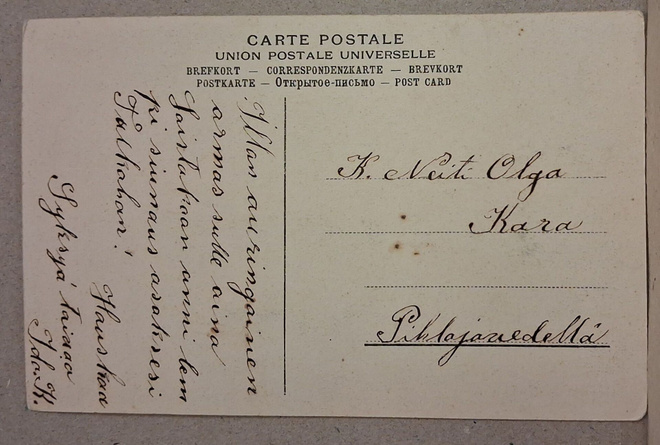 CARTE POSTALE
UNION POSTALE UNIVERSELLE
BREFKORT — CORRESPONDENZKARTE — BREVKORT
POSTKARTE — Открытое-письмо — POST CARD
Iltan auringainen
armas sulle aina
Loistakaan onni lem
pi siunaus asuksesi
Palkahan!
Hauskaa
Syksyä taisaa
Ida. K.
K. Neiti Olga
Kara
Pihlajavedellä